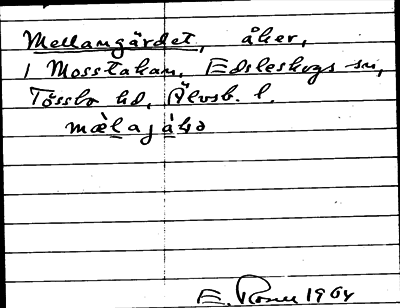 Mellangärdet, åker,
i Mosstakan, Edsleskogs sn,
Tössbo hd, Älvsb. l.
E. Rosen 1964